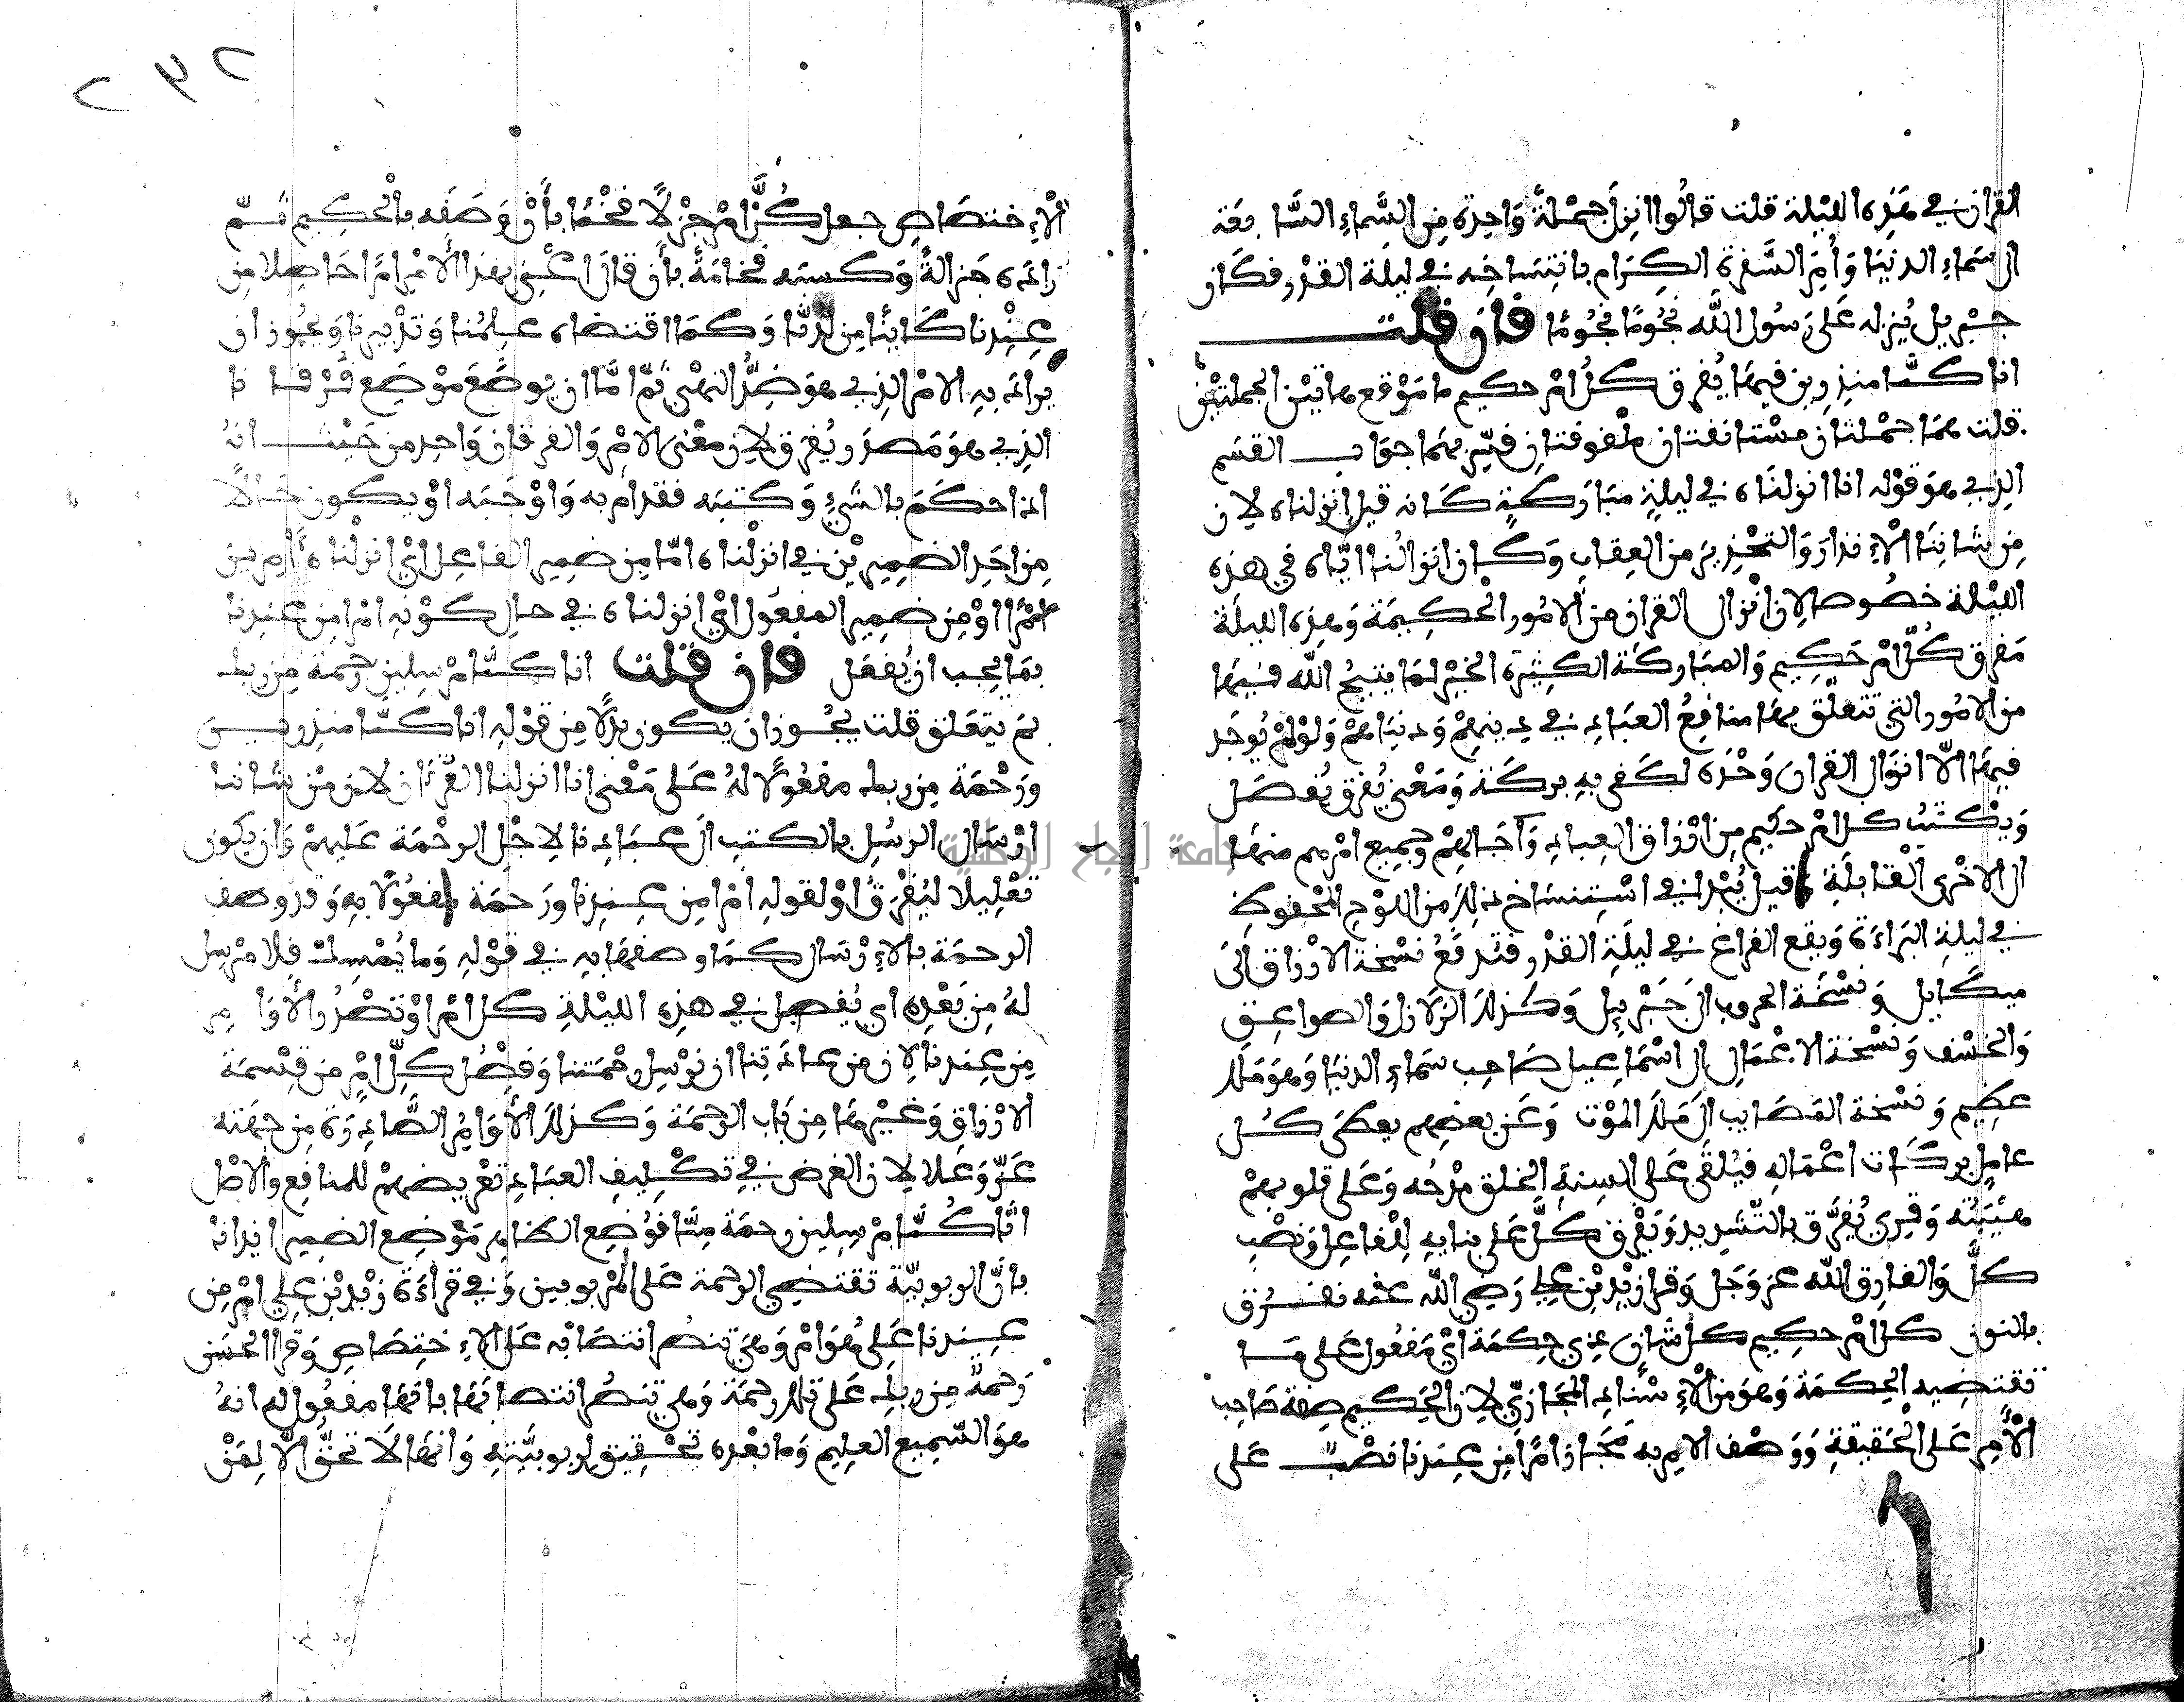 القران في هذه الليلة قلت قالوا انزل جملة واحدة من السماء السابعة
الى سماء الدنيا وأمر السفرة الكرام بانتساخه في ليلة القدر فكان
جبريل ينزله على رسول الله نجوما نجوما فان قلت
انا كنا منذرين فيها يفرق كل امر حكيم ما موقع هاتين الجملتين
قلت هما جملتان مستانفتان ملفوفتان فسر بهما جواب القسم
الذي هو قوله انا انزلناه في ليلة مباركة كانه قيل انزلناه لان
من شاننا الإنذار والتحذير من العقاب وكان انزالنا اياه في هذه
الليلة خصوصا لان انزال القران من الامور الحكيمة وهذه الليلة
مفرق كل امر حكيم والمباركة الكثيرة الخير لما يتيح الله فيها
من الامور التي تتعلق بها منافع العباد في دينهم ودنياهم ولو لم يوجد
فيها الا انزال القران وحده لكفى به بركة ومعنى يفرق يفصل
ويكتب كل امر حكيم من ارزاق العباد وآجالهم وجميع امرهم منها
الى الاخرى القابلة قيل يبدا في استنساخ ذلك من اللوح المحفوظ
في ليلة البراءة ويقع الفراغ في ليلة القدر فتدفع نسخة الارزاق الى
ميكايل ونسخة الحروب الى جبريل وكذلك الزلازل والصواعق
والخسف ونسخة الاعمال الى اسماعيل صاحب سماء الدنيا وهو ملك
عظيم ونسخة المصايب الى ملك الموت وعن بعضهم يعطى كل
عامل بركات اعماله فيلقى على السنة الخلق مدحه وعلى قلوبهم
هيبته وقري يفرق بالتشديد ويفرق كل على بنايه للفاعل ونصب
كل والفارق الله عز وجل وقرا زيد بن علي رضي الله عنه نفرق
بالنون كل امر حكيم كل شان ذي حكمة اي مفعول على ما
تقتضيه الحكمة وهو من الإسناد المجازي لان الحكيم صفة صاحب
الأمر على الحقيقة ووصف الامر به مجاز امرا من عندنا نصب على
٢٣٢
الإختصاص جعل كل امر جزلا فخما بأن وصفه بالحكيم ثم
زاده جزالة وكسبه فخامة بأن قال اعني بهذا الأمر امرا حاصلا من
عندنا كاينا من لدنا وكما اقتضاه علمنا وتدبيرنا ويجوز ان
يراد به الامر الذي هو ضد النهي ثم اما ان يوضع موضع فرقانا
الذي هو مصدر يفرق لان معنى الامر والفرقان واحد من حيث انه
اذا حكم بالشيء وكتبه فقد امر به واوجبه او يكون حالا
من احد الضميرين في انزلناه اما من ضمير الفاعل اي انزلناه آمرين
امرا او من ضمير المفعول اي انزلناه في حال كونه امرا من عندنا
بما يجب ان يفعل فان قلت انا كنا مرسلين رحمة من ربك
بم يتعلق قلت يجوز ان يكون بدلا من قوله انا كنا منذرين
ورحمة من ربك مفعولا له على معنى انا انزلنا القرءان لان من شاننا
ارسال الرسل بالكتب الى عبادنا لاجل الرحمة عليهم وان يكون
تعليلا ليفرق او لقوله امرا من عندنا ورحمة مفعولا به وقد وصف
الرحمة بالإرسال كما وصفها به في قوله وما يمسك فلا مرسل
له من بعده اي يفصل في هذه الليلة كل امر او تصدر الأوامر
من عندنا لان من عادتنا ان نرسل رحمتنا وفصل كل امر من قسمة
الارزاق وغيرها من باب الرحمة وكذلك الأوامر الصادرة من جهته
عز وعلا لان الغرض في تكليف العباد تعريضهم للمنافع والاصل
انا كنا مرسلين رحمة منا فوضع الظاهر موضع الضمير ايذانا
بان الربوبية تقتضي الرحمة على المربوبين وفي قراءة زيد بن علي امر من
عندنا على هو امر وهي تنصر انتصابه على الإختصاص وقرا الحسن
رحمة من ربك على تلك رحمة وهي تنصر انتصابها بانها مفعول له انه
هو السميع العليم وما بعده تحقيق لربوبيته وانها لا تحق الا لمن